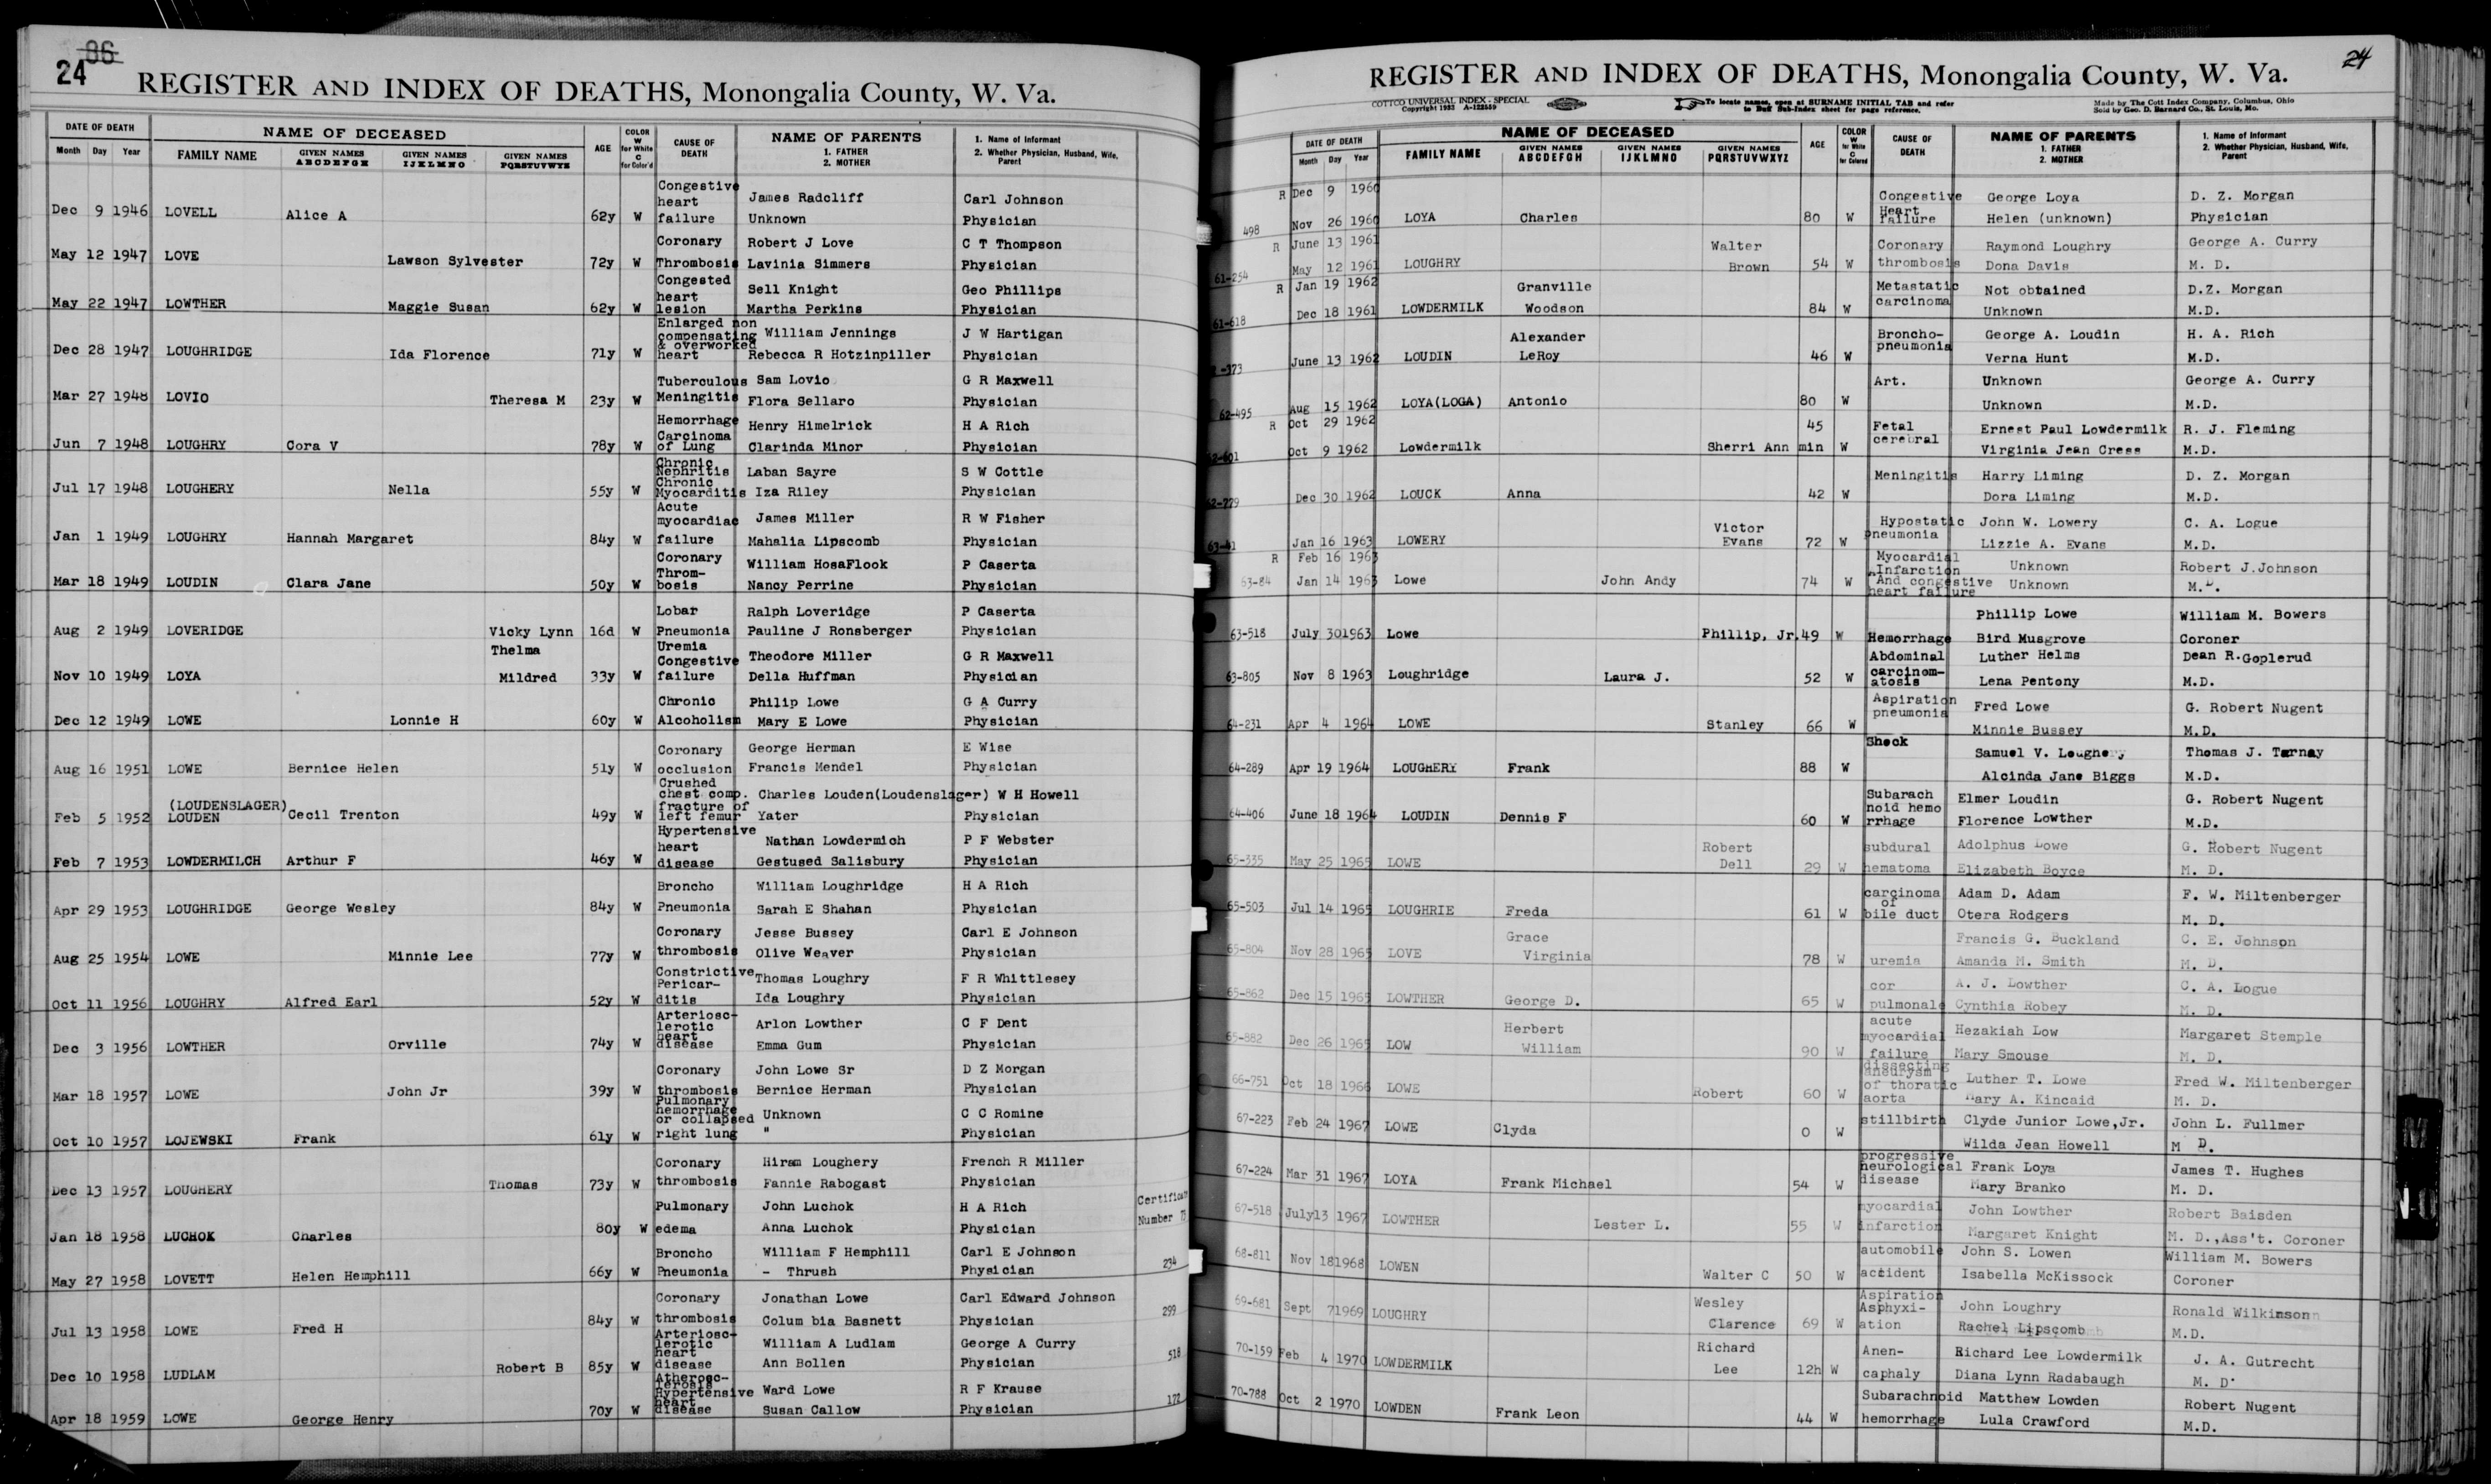 24 86
REGISTER AND INDEX OF DEATHS, Monongalia County, W. Va.
DATE OF DEATH NAME OF DECEASED AGE COLOR W for White C for Color'd CAUSE OF DEATH NAME OF PARENTS 1. FATHER 2. MOTHER 1. Name of Informant 2. Whether Physician, Husband, Wife, Parent
Month Day Year FAMILY NAME GIVEN NAMES ABCDEFGH GIVEN NAMES IJKLMNO GIVEN NAMES PQRSTUVWYZ
Dec 9 1946 LOVELL Alice A 62y W Congestive heart failure James Radcliff Unknown Carl Johnson Physician
May 12 1947 LOVE Lawson Sylvester 72y W Coronary Thrombosis Robert J Love Lavinia Simmers C T Thompson Physician
May 22 1947 LOWTHER Maggie Susan 62y W Congested heart lesion Sell Knight Martha Perkins Geo Phillips Physician
Dec 28 1947 LOUGHRIDGE Ida Florence 71y W Enlarged non compensating & overworked heart William Jennings Rebecca R Hotzinpiller J W Hartigan Physician
Mar 27 1948 LOVIO Theresa M 23y W Tuberculous Meningitis Sam Lovio Flora Sellaro G R Maxwell Physician
Jun 7 1948 LOUGHRY Cora V 78y W Hemorrhage Carcinoma of Lung Henry Himelrick Clarinda Minor H A Rich Physician
Jul 17 1948 LOUGHERY Nella 55y W Chronic Nephritis Chronic Myocarditis Laban Sayre Iza Riley S W Cottle Physician
Jan 1 1949 LOUGHRY Hannah Margaret 84y W Acute myocardiac failure James Miller Mahalia Lipscomb R W Fisher Physician
Mar 18 1949 LOUDIN Clara Jane 50y W Coronary Throm- bosis William HosaFlook Nancy Perrine P Caserta Physician
Aug 2 1949 LOVERIDGE Vicky Lynn 16d W Lobar Pneumonia Ralph Loveridge Pauline J Ronsberger P Caserta Physician
Nov 10 1949 LOYA Thelma Mildred 33y W Uremia Congestive failure Theodore Miller Della Huffman G R Maxwell Physician
Dec 12 1949 LOWE Lonnie H 60y W Chronic Alcoholism Philip Lowe Mary E Lowe G A Curry Physician
Aug 16 1951 LOWE Bernice Helen 51y W Coronary occlusion George Herman Francis Mendel E Wise Physician
Feb 5 1952 (LOUDENSLAGER) LOUDEN Cecil Trenton 49y W Crushed chest comp. fracture of left femur Charles Louden(Loudenslager) Yater W H Howell Physician
Feb 7 1953 LOWDERMILCH Arthur F 46y W Hypertensive heart disease Nathan Lowdermich Gestused Salisbury P F Webster Physician
Apr 29 1953 LOUGHRIDGE George Wesley 84y W Broncho Pneumonia William Loughridge Sarah E Shahan H A Rich Physician
Aug 25 1954 LOWE Minnie Lee 77y W Coronary thrombosis Jesse Bussey Olive Weaver Carl E Johnson Physician
Oct 11 1956 LOUGHRY Alfred Earl 52y W Constrictive Pericar- ditis Thomas Loughry Ida Loughry F R Whittlesey Physician
Dec 3 1956 LOWTHER Orville 74y W Arteriosc- lerotic heart disease Arlon Lowther Emma Gum C F Dent Physician
Mar 18 1957 LOWE John Jr 39y W Coronary thrombosis John Lowe Sr Bernice Herman D Z Morgan Physician
Oct 10 1957 LOJEWSKI Frank 61y W Pulmonary hemorrhage or collapsed right lung Unknown " C C Romine Physician
Dec 13 1957 LOUGHERY Thomas 73y W Coronary thrombosis Hiram Loughery Fannie Rabogast French R Miller Physician
Certificate Number
Jan 18 1958 LUCHOK Charles 80y W Pulmonary edema John Luchok Anna Luchok H A Rich Physician
May 27 1958 LOVETT Helen Hemphill 66y W Broncho Pneumonia William F Hemphill - Thrush Carl E Johnson Physician 234
Jul 13 1958 LOWE Fred H 84y W Coronary thrombosis Jonathan Lowe Colum bia Basnett Carl Edward Johnson Physician 299
Dec 10 1958 LUDLAM Robert B 85y W Arteriosc- lerotic heart disease William A Ludlam Ann Bollen George A Curry Physician 518
Apr 18 1959 LOWE George Henry 70y W Atherosc- lerosis Hypertensive heart disease Ward Lowe Susan Callow R F Krause Physician 172
24
REGISTER AND INDEX OF DEATHS, Monongalia County, W. Va.
COTTCO UNIVERSAL INDEX - SPECIAL Copyright 1932 A-122559
To locate names, open at SURNAME INITIAL TAB and refer to Buff Sub-Index sheet for page reference.
Made by The Cott Index Company, Columbus, Ohio
Sold by Geo. D. Barnard Co., St. Louis, Mo.
DATE OF DEATH NAME OF DECEASED AGE COLOR W for White C for Colored CAUSE OF DEATH NAME OF PARENTS 1. FATHER 2. MOTHER 1. Name of Informant 2. Whether Physician, Husband, Wife, Parent
Month Day Year FAMILY NAME GIVEN NAMES ABCDEFGH GIVEN NAMES IJKLMNO GIVEN NAMES PQRSTUVWXYZ
R Dec 9 1960
498 Nov 26 1960 LOYA Charles 80 W Congestive Heart failure George Loya Helen (unknown) D. Z. Morgan Physician
R June 13 1961
61-254 May 12 1961 LOUGHRY Walter Brown 54 W Coronary thrombosis Raymond Loughry Dona Davis George A. Curry M. D.
R Jan 19 1962
61-618 Dec 18 1961 LOWDERMILK Granville Woodson 84 W Metastatic carcinoma Not obtained Unknown D.Z. Morgan M.D.
-373 June 13 1962 LOUDIN Alexander LeRoy 46 W Broncho- pneumonia George A. Loudin Verna Hunt H. A. Rich M.D.
62-495 Aug 15 1962 LOYA(LOGA) Antonio 80 W Art. Unknown Unknown George A. Curry M.D.
R Oct 29 1962
62-601 Oct 9 1962 Lowdermilk Sherri Ann 45 min W Fetal cerebral Ernest Paul Lowdermilk Virginia Jean Cress R. J. Fleming M.D.
62-779 Dec 30 1962 LOUCK Anna 42 W Meningitis Harry Liming Dora Liming D. Z. Morgan M.D.
63-41 Jan 16 1963 LOWERY Victor Evans 72 W Hypostatic pneumonia John W. Lowery Lizzie A. Evans C. A. Logue M.D.
R Feb 16 1963
63-84 Jan 14 1963 Lowe John Andy 74 W Myocardial Infarction And congestive heart failure Unknown Unknown Robert J.Johnson M.D.
63-518 July 30 1963 Lowe Phillip, Jr. 49 W Hemorrhage Phillip Lowe Bird Musgrove William M. Bowers Coroner
63-805 Nov 8 1963 Loughridge Laura J. 52 W Abdominal carcinom- atosis Luther Helms Lena Pentony Dean R. Goplerud M.D.
64-231 Apr 4 1964 LOWE Stanley 66 W Aspiration pneumonia Fred Lowe Minnie Bussey G. Robert Nugent M.D.
64-289 Apr 19 1964 LOUGHERY Frank 88 W Shock Samuel V. Loughery Alcinda Jane Biggs Thomas J. Tarnay M.D.
64-406 June 18 1964 LOUDIN Dennis F 60 W Subarach noid hemo rrhage Elmer Loudin Florence Lowther G. Robert Nugent M.D.
65-335 May 25 1965 LOWE Robert Dell 29 W subdural hematoma Adolphus Lowe Elizabeth Boyce G. Robert Nugent M. D.
65-503 Jul 14 1965 LOUGHRIE Freda 61 W carcinoma of bile duct Adam D. Adam Otera Rodgers F. W. Miltenberger M. D.
65-804 Nov 28 1965 LOVE Grace Virginia 78 W uremia Francis G. Buckland Amanda M. Smith C. E. Johnson M. D.
65-862 Dec 15 1965 LOWTHER George D. 65 W cor pulmonale A. J. Lowther Cynthia Robey C. A. Logue M. D.
65-882 Dec 26 1965 LOW Herbert William 90 W acute myocardial failure Hezakiah Low Mary Smouse Margaret Stemple M. D.
66-751 Oct 18 1966 LOWE Robert 60 W dissecting aneurysm of thoratic aorta Luther T. Lowe Mary A. Kincaid Fred W. Miltenberger M. D.
67-223 Feb 24 1967 LOWE Clyda 0 W stillbirth Clyde Junior Lowe,Jr. Wilda Jean Howell John L. Fullmer M D.
67-224 Mar 31 1967 LOYA Frank Michael 54 W progressive neurological disease Frank Loya Mary Branko James T. Hughes M. D.
67-518 July13 1967 LOWTHER Lester L. 55 W myocardial infarction John Lowther Margaret Knight Robert Baisden M. D.,Ass't. Coroner
68-811 Nov 18 1968 LOWEN Walter C 50 W automobile accident John S. Lowen Isabella McKissock William M. Bowers Coroner
69-681 Sept 7 1969 LOUGHRY Wesley Clarence 69 W Aspiration Asphyxi- ation John Loughry Rachel Lipscomb Ronald Wilkinson M.D.
70-159 Feb 4 1970 LOWDERMILK Richard Lee 12h W Anen- caphaly Richard Lee Lowdermilk Diana Lynn Radabaugh J. A. Gutrecht M. D.
70-788 Oct 2 1970 LOWDEN Frank Leon 44 W Subarachnoid hemorrhage Matthew Lowden Lula Crawford Robert Nugent M.D.